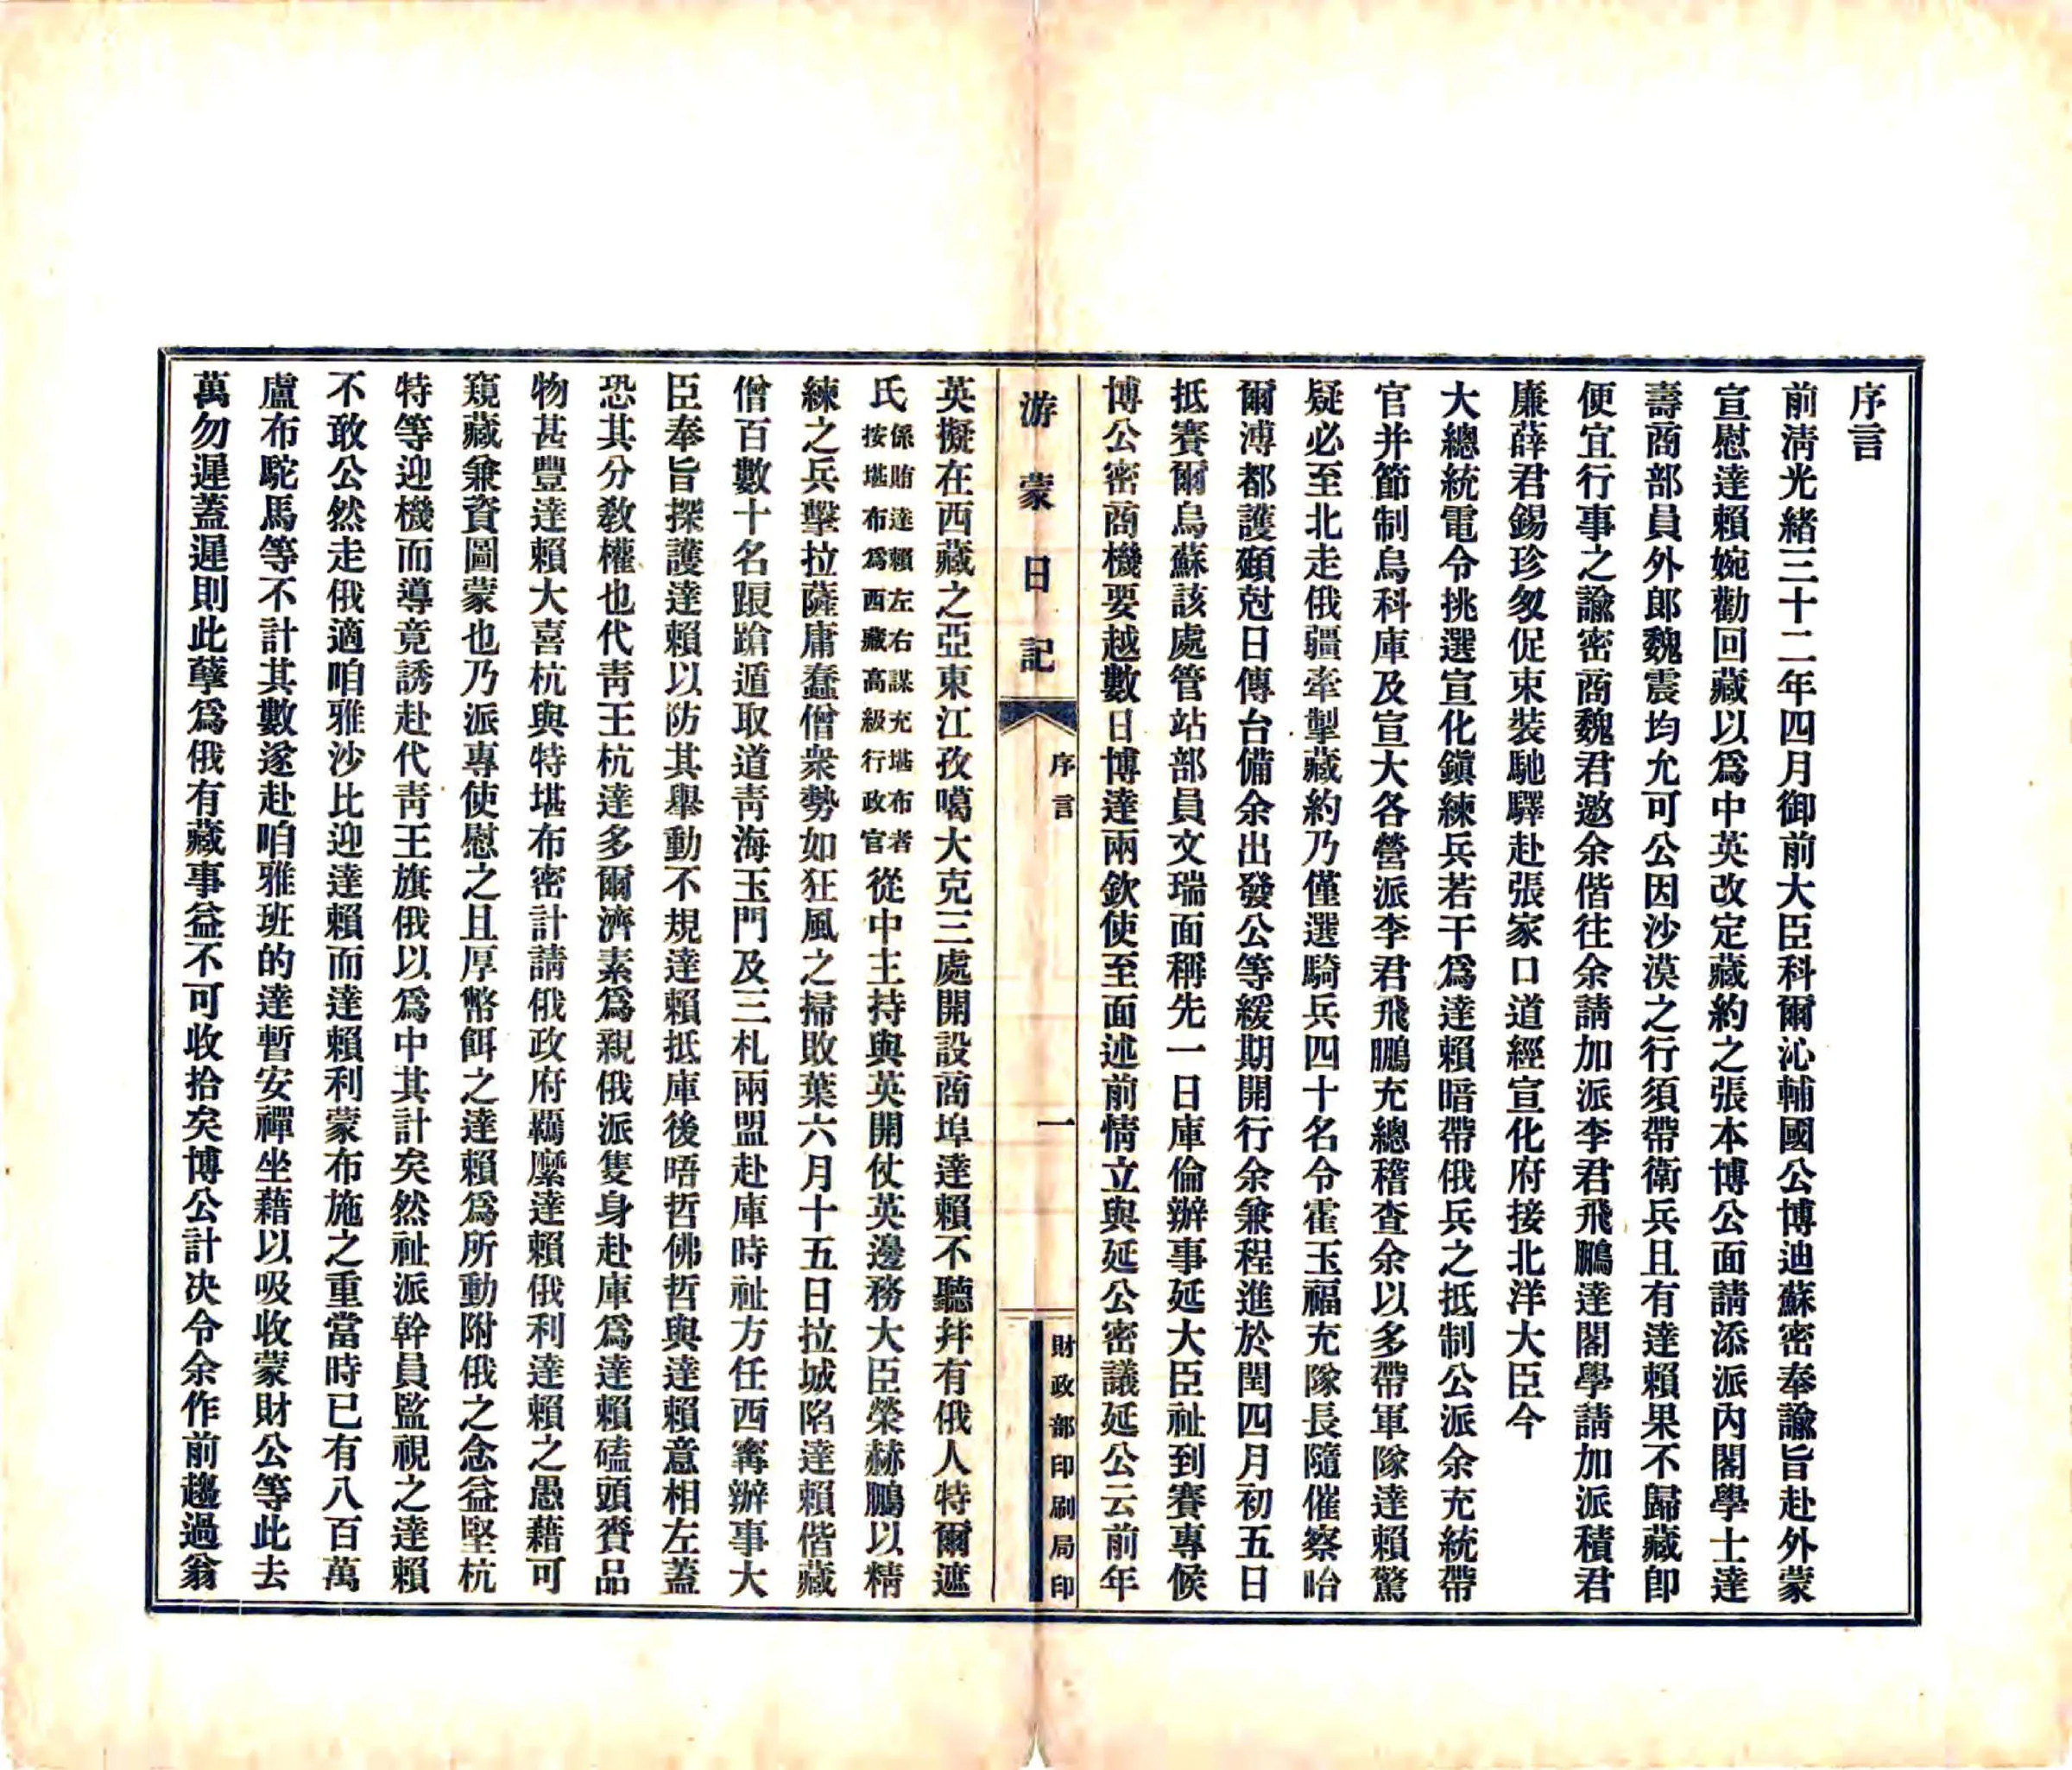 序言
前淸光緒三十二年四月御前大臣科爾沁輔國公博迪蘇密奉諭旨赴外蒙
宣慰達賴婉勸回藏以爲中英改定藏約之張本博公面請添派內閣學士達
壽商部員外郎魏震均允可公因沙漠之行須帶衛兵且有達賴果不歸藏卽
便宜行事之諭密商魏君邀余偕往余請加派李君飛鵬達閣學請加派積君
廉薛君錫珍匆促束裝馳驛赴張家口道經宣化府接北洋大臣今
大總統電令挑選宣化鎭練兵若干爲達賴暗帶俄兵之抵制公派余充統帶
官并節制烏科庫及宣大各營派李君飛鵬充總稽查余以多帶軍隊達賴驚
疑必至北走俄疆牽掣藏約乃僅選騎兵四十名令霍玉福充隊長隨催察哈
爾溥都護頲尅日傳台備余出發公等緩期開行余兼程進於閏四月初五日
抵賽爾烏蘇該處管站部員文瑞面稱先一日庫倫辦事延大臣祉到賽專候
博公密商機要越數日博達兩欽使至面述前情立與延公密議延公云前年
游蒙日記
序言
一
財政部印刷局印
英擬在西藏之亞東江孜噶大克三處開設商埠達賴不聽幷有俄人特爾遮
氏係賄達賴左右謀充堪布者按堪布爲西藏高級行政官從中主持與英開仗英邊務大臣榮赫鵬以精
練之兵擊拉薩庸蠢僧衆勢如狂風之掃敗葉六月十五日拉城陷達賴偕藏
僧百數十名踉蹌遁取道靑海玉門及三札兩盟赴庫時祉方任西寗辦事大
臣奉旨探護達賴以防其舉動不規達賴抵庫後晤哲佛哲與達賴意相左蓋
恐其分敎權也代靑王杭達多爾濟素爲親俄派隻身赴庫爲達賴磕頭賫品
物甚豐達賴大喜杭與特堪布密計請俄政府羈縻達賴俄利達賴之愚藉可
窺藏兼資圖蒙也乃派專使慰之且厚幣餌之達賴爲所動附俄之念益堅杭
特等迎機而導竟誘赴代靑王旗俄以爲中其計矣然祉派幹員監視之達賴
不敢公然走俄適咱雅沙比迎達賴而達賴利蒙布施之重當時已有八百萬
盧布駝馬等不計其數遂赴咱雅班的達暫安禪坐藉以吸收蒙財公等此去
萬勿遲蓋遲則此孽爲俄有藏事益不可收拾矣博公計決令余作前趨過翁